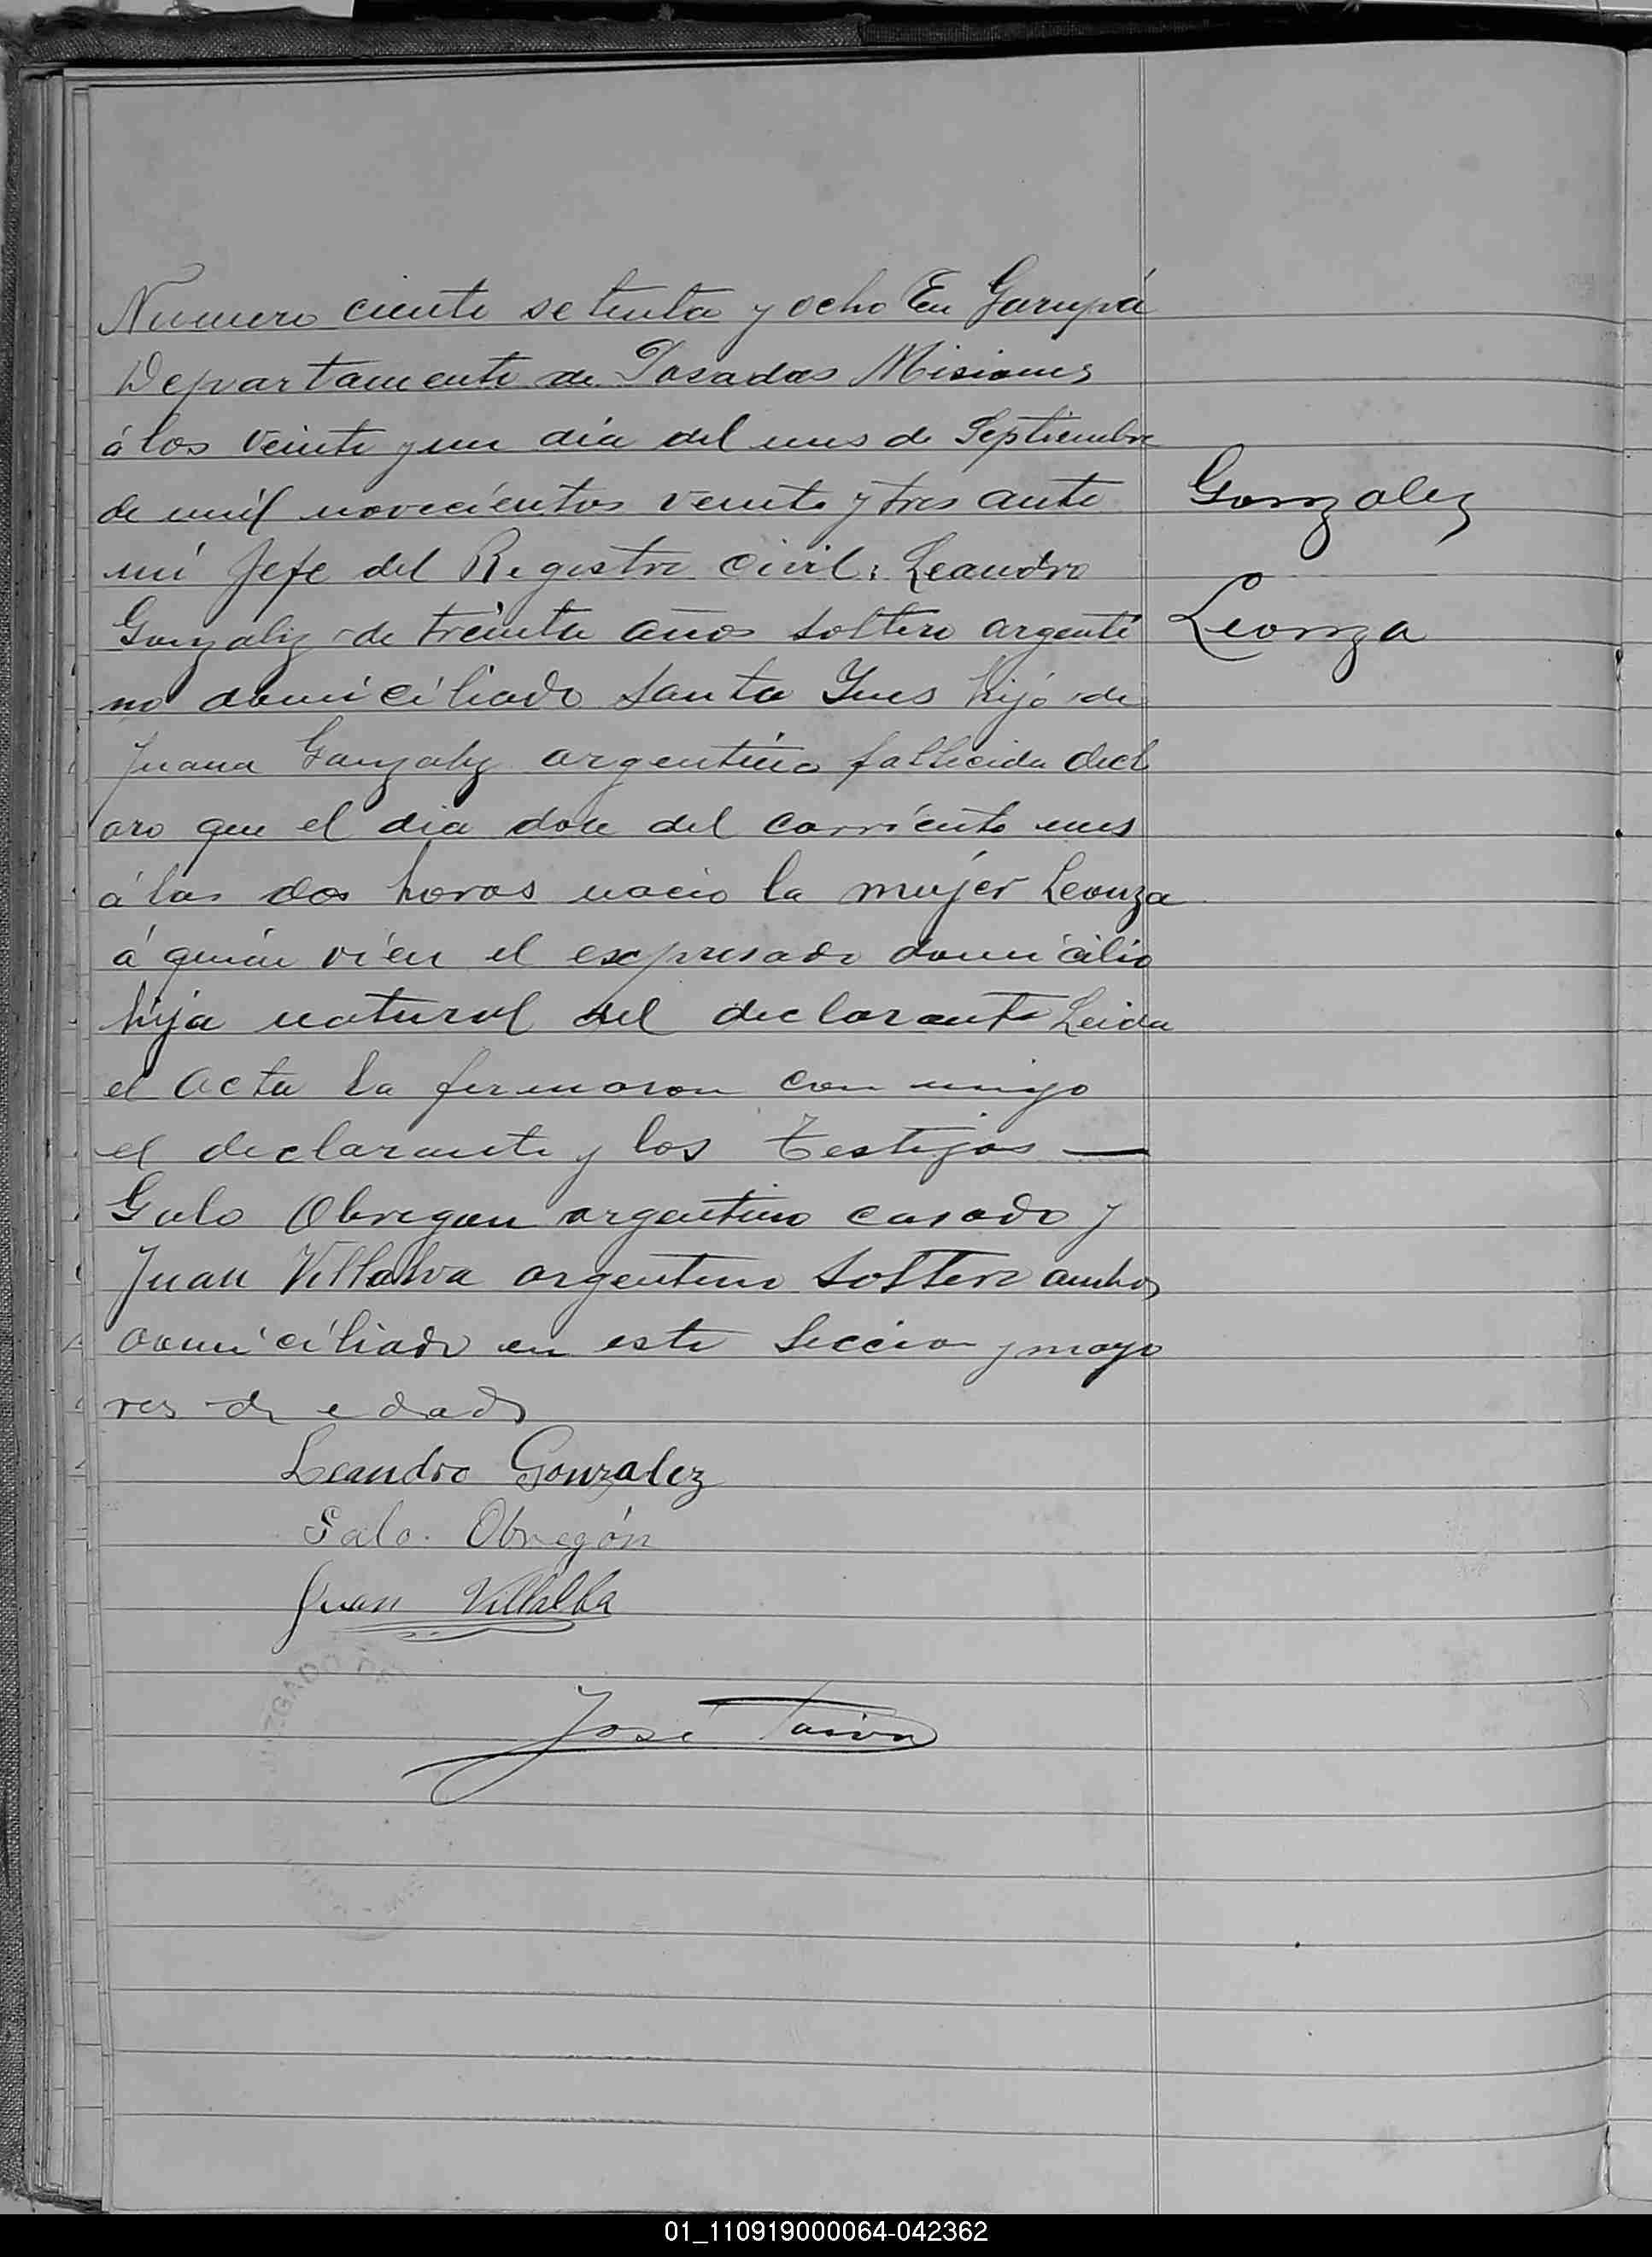 Numero ciento setenta y ocho En Garupá
Departamento de Posadas Misiones
á los veinte y un dia del mes de Septiembre
de mil novecientos veinte y tres ante
mi Jefe del Registro Civil: Leandro
Gonzalez de treinta años soltero argenti
no domiciliado Santa Ynes hijo de
Juana Gonzalez argentina fallecida decl
aro que el dia doce del corriente mes
á las dos horas nacio la mujer Leonza
á quien vi en el expresado domicilio
hija natural del declarante Leida
el acta la firmaron con migo
el declarante y los testigos —
Galo Obregon argentino casado y
Juan Villalva argentino soltero ambos
domiciliado en este Seccion y mayo
res de edad
Gonzalez
Leonza
Leandro Gonzalez
Galo Obregón
Juan Villalba
José
01_110919000064-042362